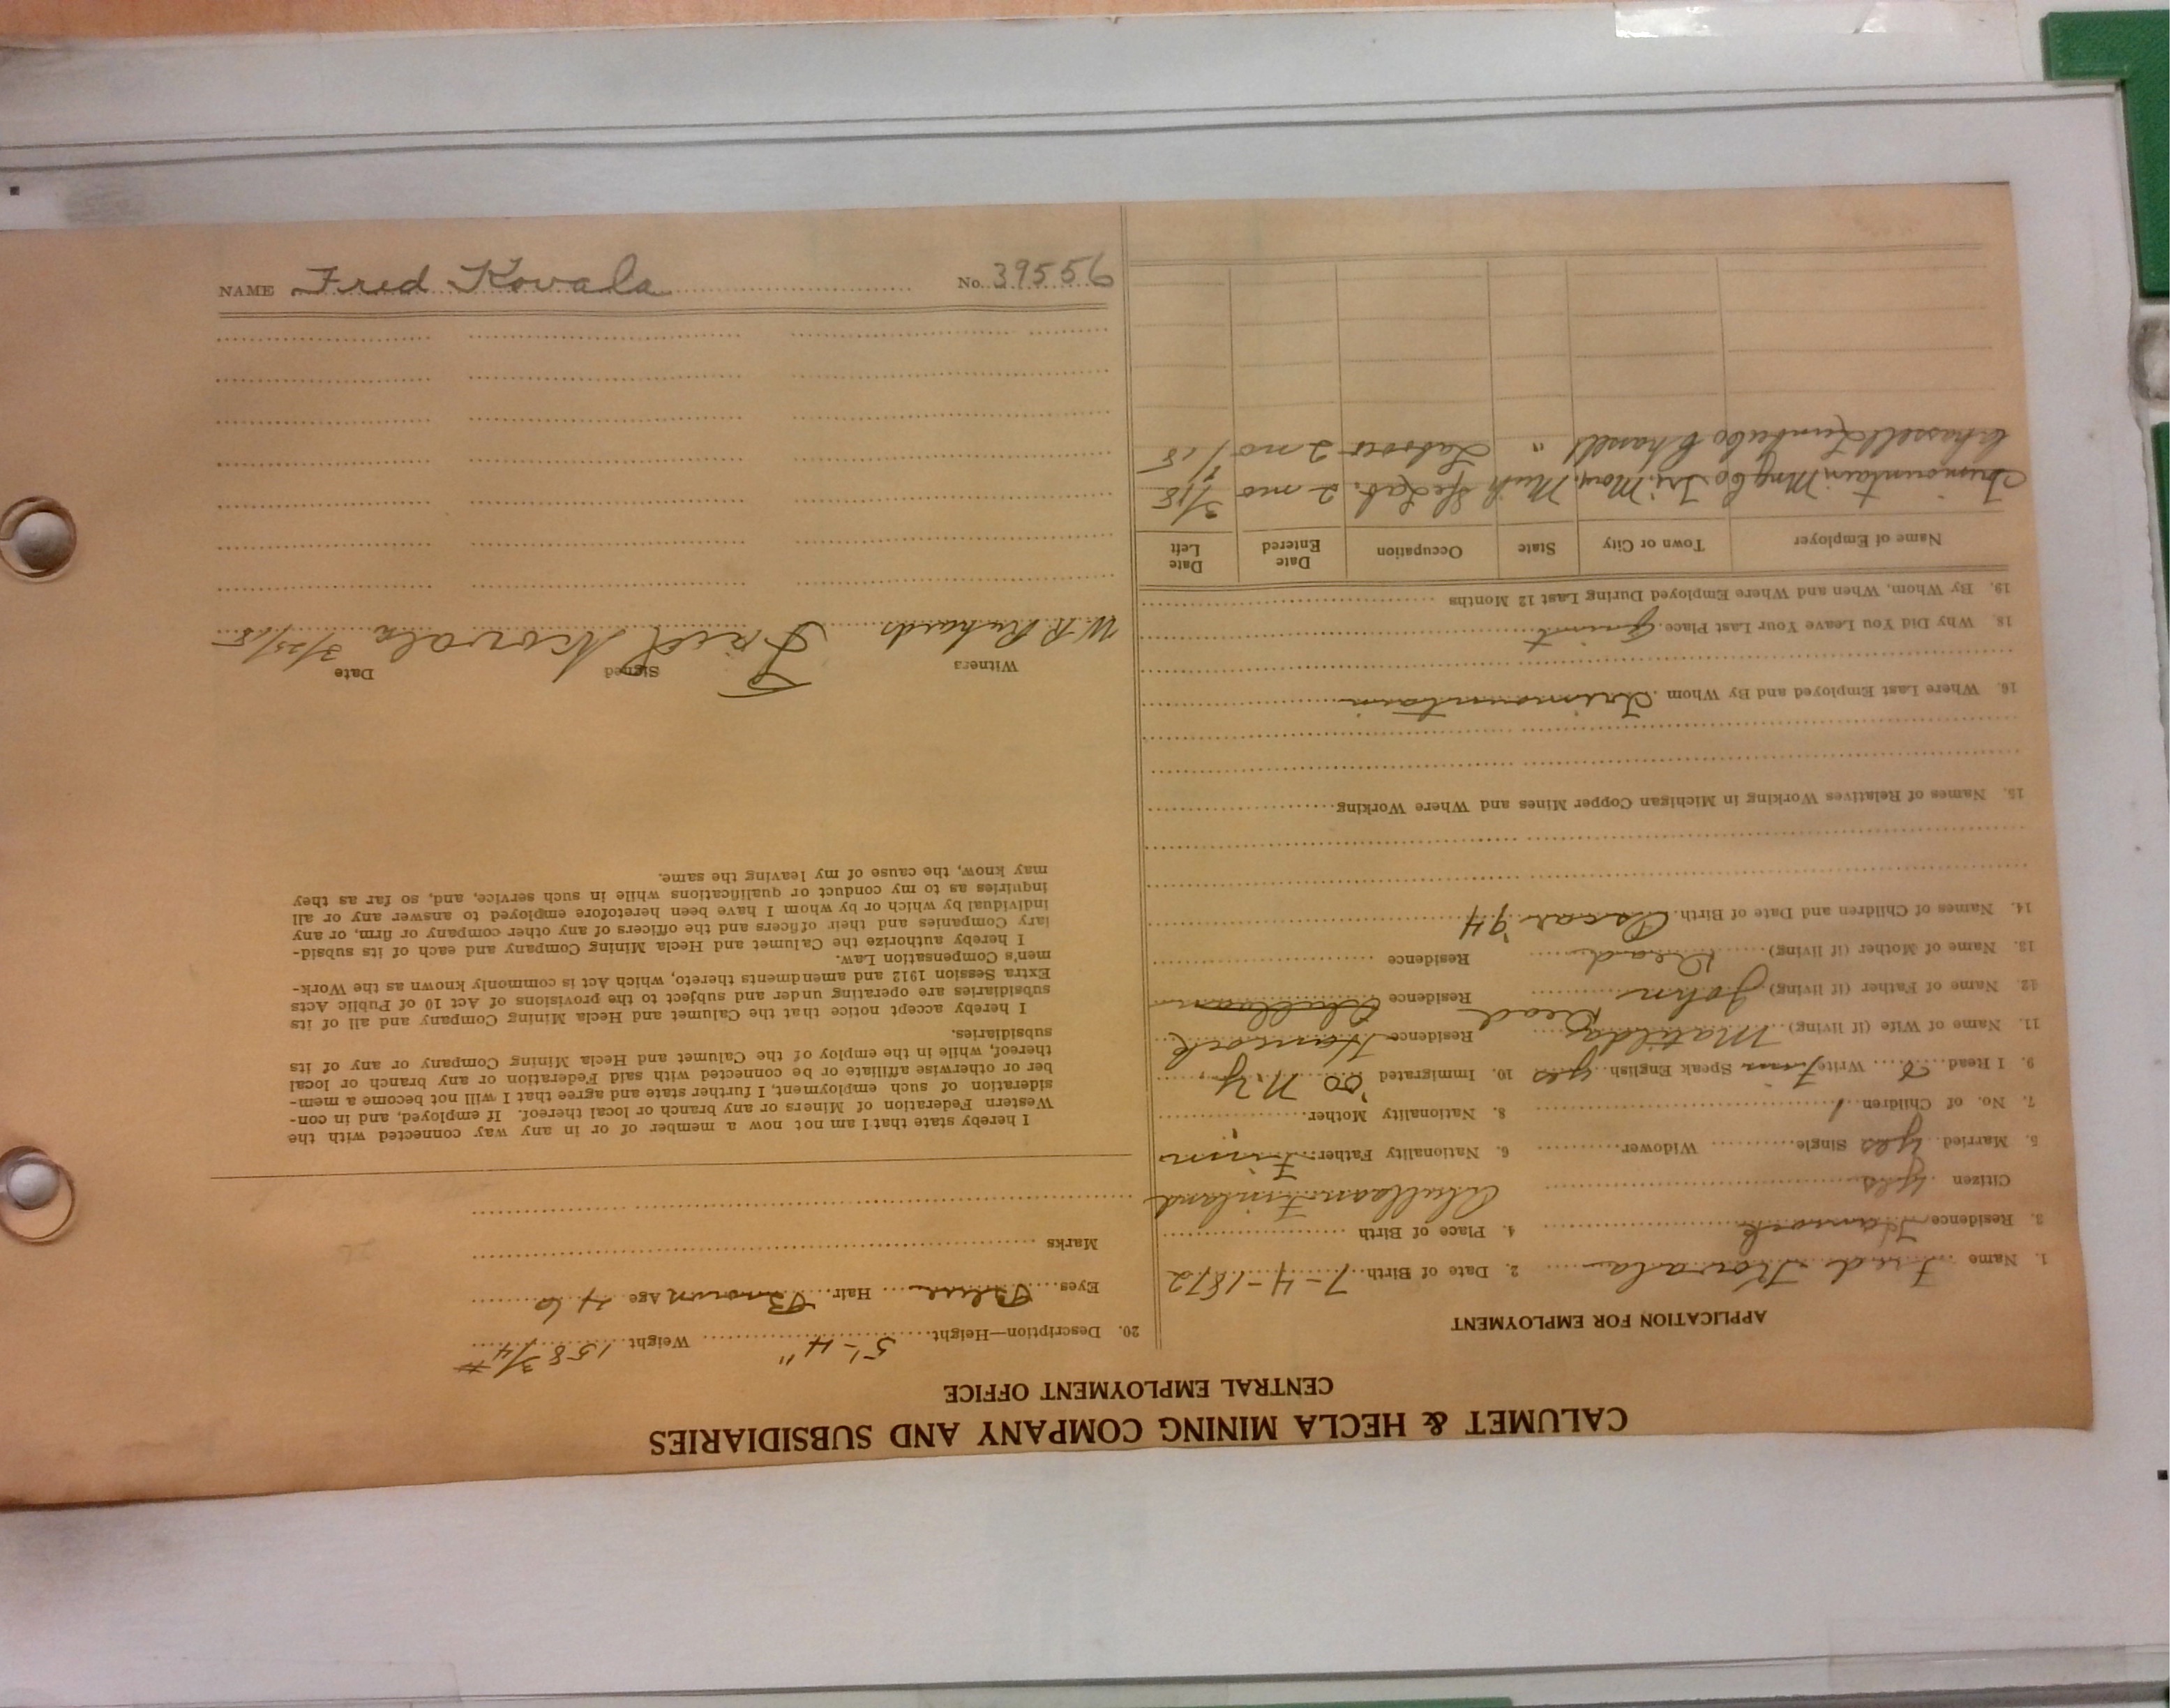 CALUMET & HECLA MINING COMPANY AND SUBSIDIARIES
CENTRAL EMPLOYMENT OFFICE
APPLICATION FOR EMPLOYMENT
1. Name Fred Kovala 2. Date of Birth 7-4-1872
3. Residence Hancock 4. Place of Birth
Citizen yes Finland
5. Married yes Single Widower 6. Nationality Father Finn
7. No. of Children 1 8. Nationality Mother "
9. I Read & Write Finn Speak English yes 10. Immigrated '00 N.Y.
11. Name of Wife (if living) Matilda Residence Hancock
12. Name of Father (if living) John Dead Residence
13. Name of Mother (if living) Dead Residence
14. Names of Children and Date of Birth Oscar '94
15. Names of Relatives Working in Michigan Copper Mines and Where Working
16. Where Last Employed and By Whom Trimountain
18. Why Did You Leave Your Last Place Quit
19. By Whom, When and Where Employed During Last 12 Months
Name of Employer Town or City State Occupation Date Entered Date Left
Trimountain Mng Co Tri. Mou. Mich Lab. 2 mo 3/18
Chassell Lumber Co Chassell " Laborer 2 mo 1/18
20. Description—Height 5'-4" Weight 158 3/4 #
Eyes Blue Hair Brown Age 46
Marks
I hereby state that I am not now a member of or in any way connected with the
Western Federation of Miners or any branch or local thereof. If employed, and in con-
sideration of such employment, I further state and agree that I will not become a mem-
ber or otherwise affiliate or be connected with said Federation or any branch or local
thereof, while in the employ of the Calumet and Hecla Mining Company or any of its
subsidiaries.
I hereby accept notice that the Calumet and Hecla Mining Company and all of its
subsidiaries are operating under and subject to the provisions of Act 10 of Public Acts
Extra Session 1912 and amendments thereto, which Act is commonly known as the Work-
men's Compensation Law.
I hereby authorize the Calumet and Hecla Mining Company and each of its subsid-
iary Companies and their officers and the officers of any other company or firm, or any
individual by which or by whom I have been heretofore employed to answer any or all
inquiries as to my conduct or qualifications while in such service, and, so far as they
may know, the cause of my leaving the same.
Witness Signed Date
W. R. Richards Fred Kovala 3/25/18
NAME Fred Kovala No. 39556